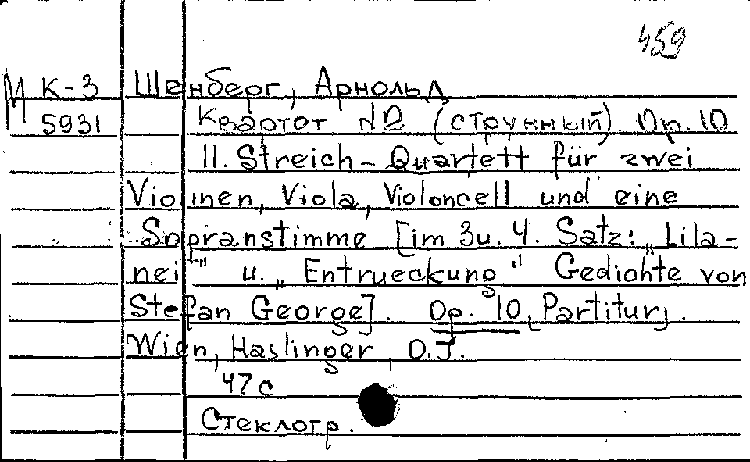 459
М К-3 Шенберг, Арнольд
5931 Квартет №2 (струнный) Op. 10
II. Streich-Quartett für zwei
Violinen, Viola, Violoncell und eine
Sopranstimme [im 3 u. 4. Satz: „Lila-
nei" u. „Entrueckung" Gedichte von
Stefan George]. Op. 10, Partitur.
Wien, Haslinger, O.J.
47 с
Стеклогр.